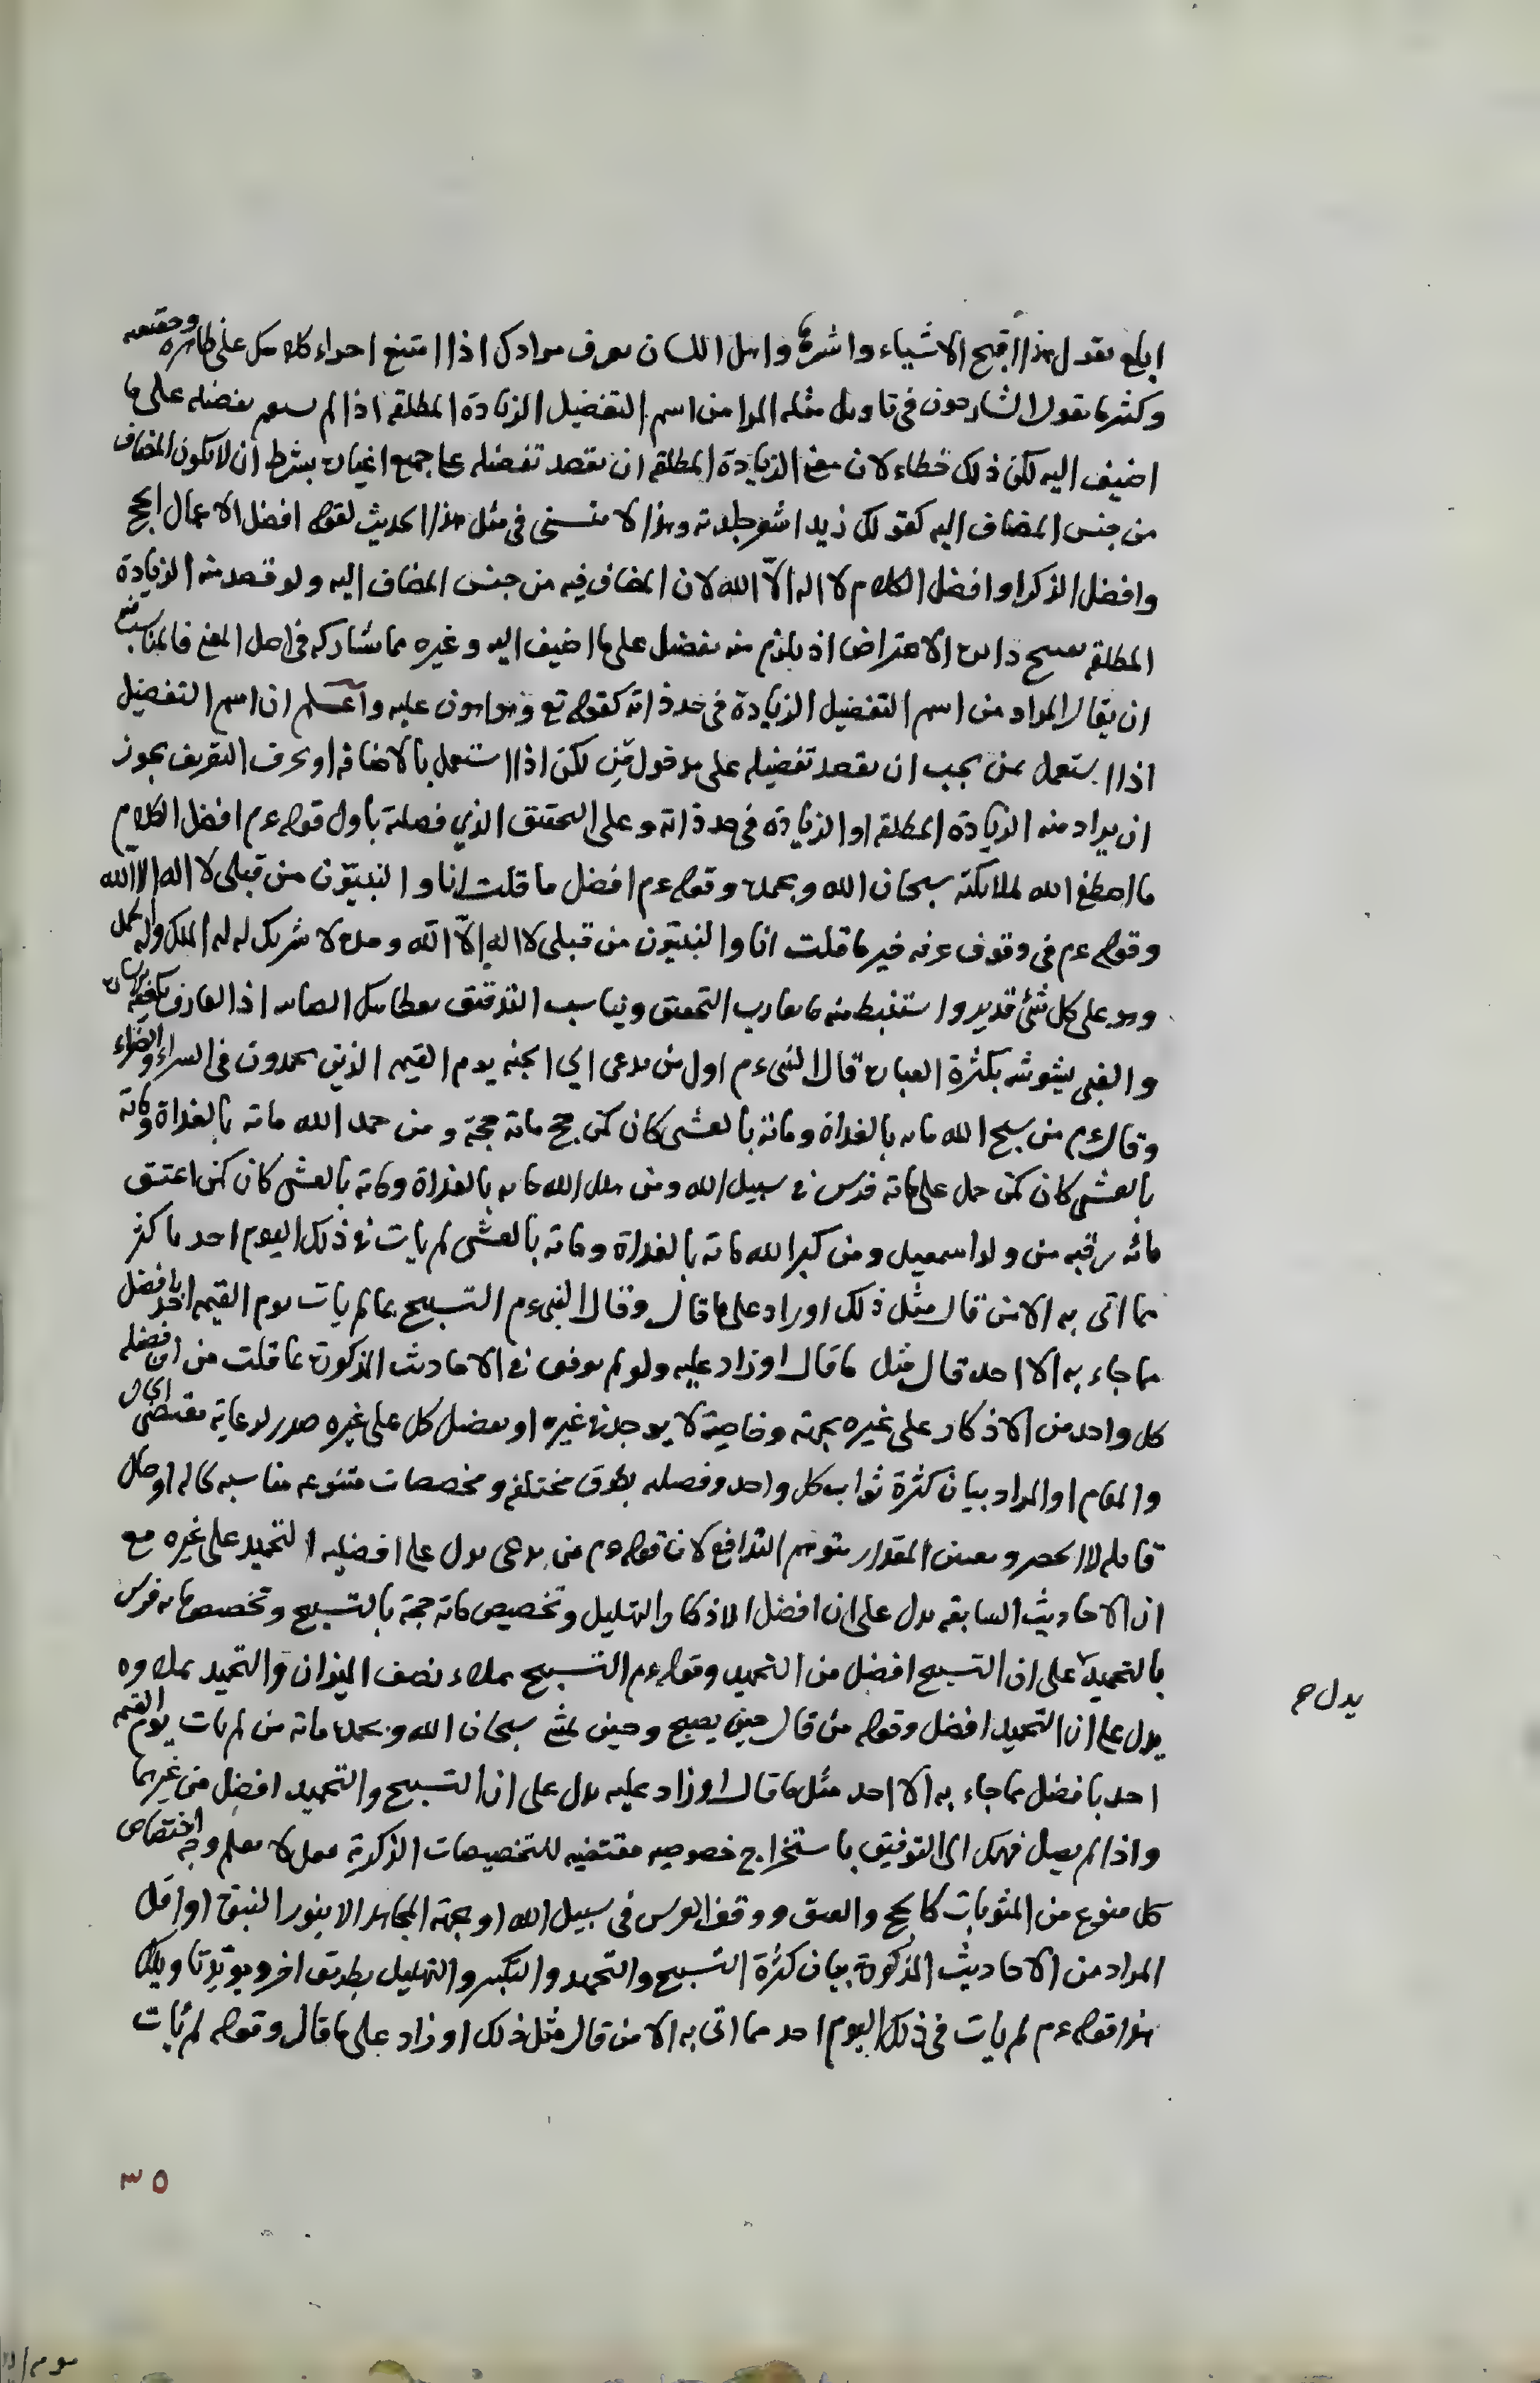 ابلغ بقول هذا اقبح الاشياء واشرها واهل اللسان يعرف مرادك اذا امتنع اجراء كلامك على ظاهره وحقيقته
وكثر ما يقول الشارحون في تاويل مثله المراد من اسم التفضيل الزيادة المطلقة اذا لم يستقم تفضيله على ما
اضيف اليه لكن ذلك خطاء لان معنى الزيادة المطلقة ان يقصد تفضيله على جميع اغياره بشرط ان لا يكون المضاف
من جنس المضاف اليه كقولك زيد اشعر جلدته وهذا لا يتسنى في مثل هذا الحديث لقوله افضل الاعمال الحج
وافضل الذكر او افضل الكلام لا اله الّا الله لان المضاف فيه من جنس المضاف اليه ولو قصد منه الزيادة
المطلقة الاعتراض اذ يلزم منه تفضيل على ما اضيف اليه وغيره مما يشاركه في اصل المعنى فالمناسب منع
ان يقال المراد من اسم التفضيل الزيادة في حد ذاته كقوله تع وهو اهون عليه واعلم ان اسم التفضيل
اذا استعمل بمن يجب ان يقصد تفضيله على مدخول مِن لكن اذا استعمل بالاضافة او بحرف التعريف يجوز
ان يراد منه الزيادة المطلقة او الزيادة في حد ذاته وعلى التحقيق الذي فصلته ياول قوله عم افضل الكلام
ما اصطفى الله لملائكته سبحان الله وبحمده وقوله عم افضل ما قلت انا والنبيّون من قبلي لا اله الا الله
وقوله عم في وقوف عرفه خير ما قلت انا والنبيّون من قبلي لا اله الّا الله وحده لا شريك له له الملك وله الحمد
وهو على كل شئ قدير واستنبط منه ما يقارب التحقيق ويناسب التدقيق اذ العارف يكفيه
والغبي يشوشه بكثرة العبارة قال النبي عم اول من يدعى الي الجنة يوم القيمه الذين يحمدون في السراء والضراء
وقال عم من سبح الله مائة بالغداة ومائة بالعشي كان كمن حج مائة حجة ومن حمد الله مائة بالغداة ومائة
بالعشي كان كمن حمل على مائة فرس في سبيل الله ومن هلل الله مائة بالغداة ومائة بالعشي كان كمن اعتق
مائه رقبه من ولد اسمعيل ومن كبر الله مائة بالغداة ومائة بالعشي لم يات في ذلك اليوم احد باكثر
مما اتى به الا من قال مثل ذلك او زاد على ما قال وقال النبي عم التسبيح مما لم يات يوم القيمه احد بافضل
مما جاء به الا احد قال مثل ما قال او زاد عليه ولو لم يوفق في الاحاديث المذكورة بما قلت من ان فضله
كل واحد من الاذكار على غيره بجهة وخاصية لا يوجد في غيره او تفضيل كل على غيره صدر لرعاية مقتضى الحال
والمقام او المراد بيان كثرة ثواب كل واحد وفضله بطرق مختلفه ومخصصات متنوعه مناسبه لحاله او حال
قائله لا الحصر وتعيين المقدار يتوهم التدافع لان قوله عم من يدعى يدل على افضليه التحميد على غيره مع
ان الاحاديث السابقه يدل على ان افضل الاذكار التهليل وتخصيص مائة حجة بالتسبيح وتخصيص مائه فرس
بالتحميد على ان التسبيح افضل من التحميد وقوله عم التسبيح يملاء نصف الميزان والتحميد يملاوه
يدل على ان التحميد افضل وقوله من قال حين يصبح وحين يمسي سبحان الله وبحمده مائة من لم يات يوم القيمه
احد بافضل مما جاء به الا احد مثل ما قال او زاد عليه يدل على ان التسبيح والتحميد افضل من غيرهما
واذا لم يصل فهمك الى التوفيق باستخراج خصوصيه مقتضيه للتخصيصات المذكورة لا يعلم وجه اختصاص
كل منوع من المثوبات كالحج والعتق ووقف الفرس في سبيل الله او بجهة المجاهد الا بنور النبوة او اقل
المراد من الاحاديث المذكورة بيان كثرة التسبيح والتحميد والتكبير والتهليل بطريق اخر ويويد تاويلك
هذا قوله عم لم يات في ذلك اليوم احد مما اتى به الا من قال مثل ذلك او زاد على ما قال وقوله لم يات
يدل ح
٣٥